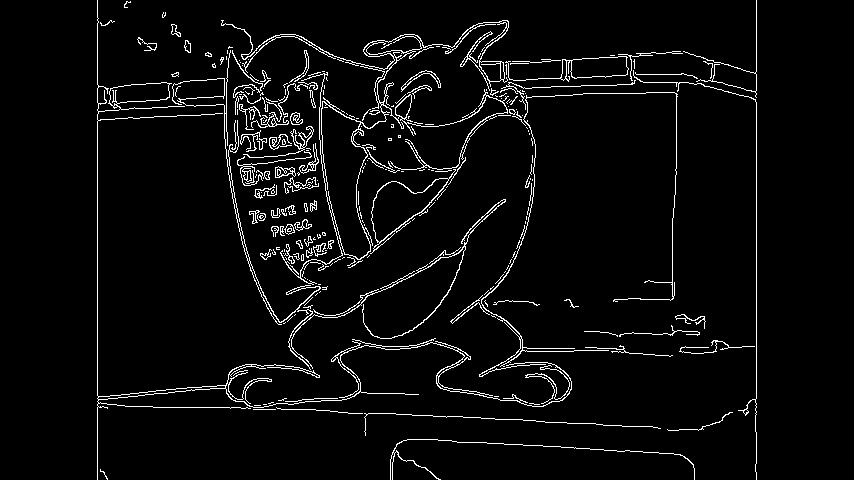 Peace
Treaty
The Dog, Cat
and Mouse
To Live in
Peace